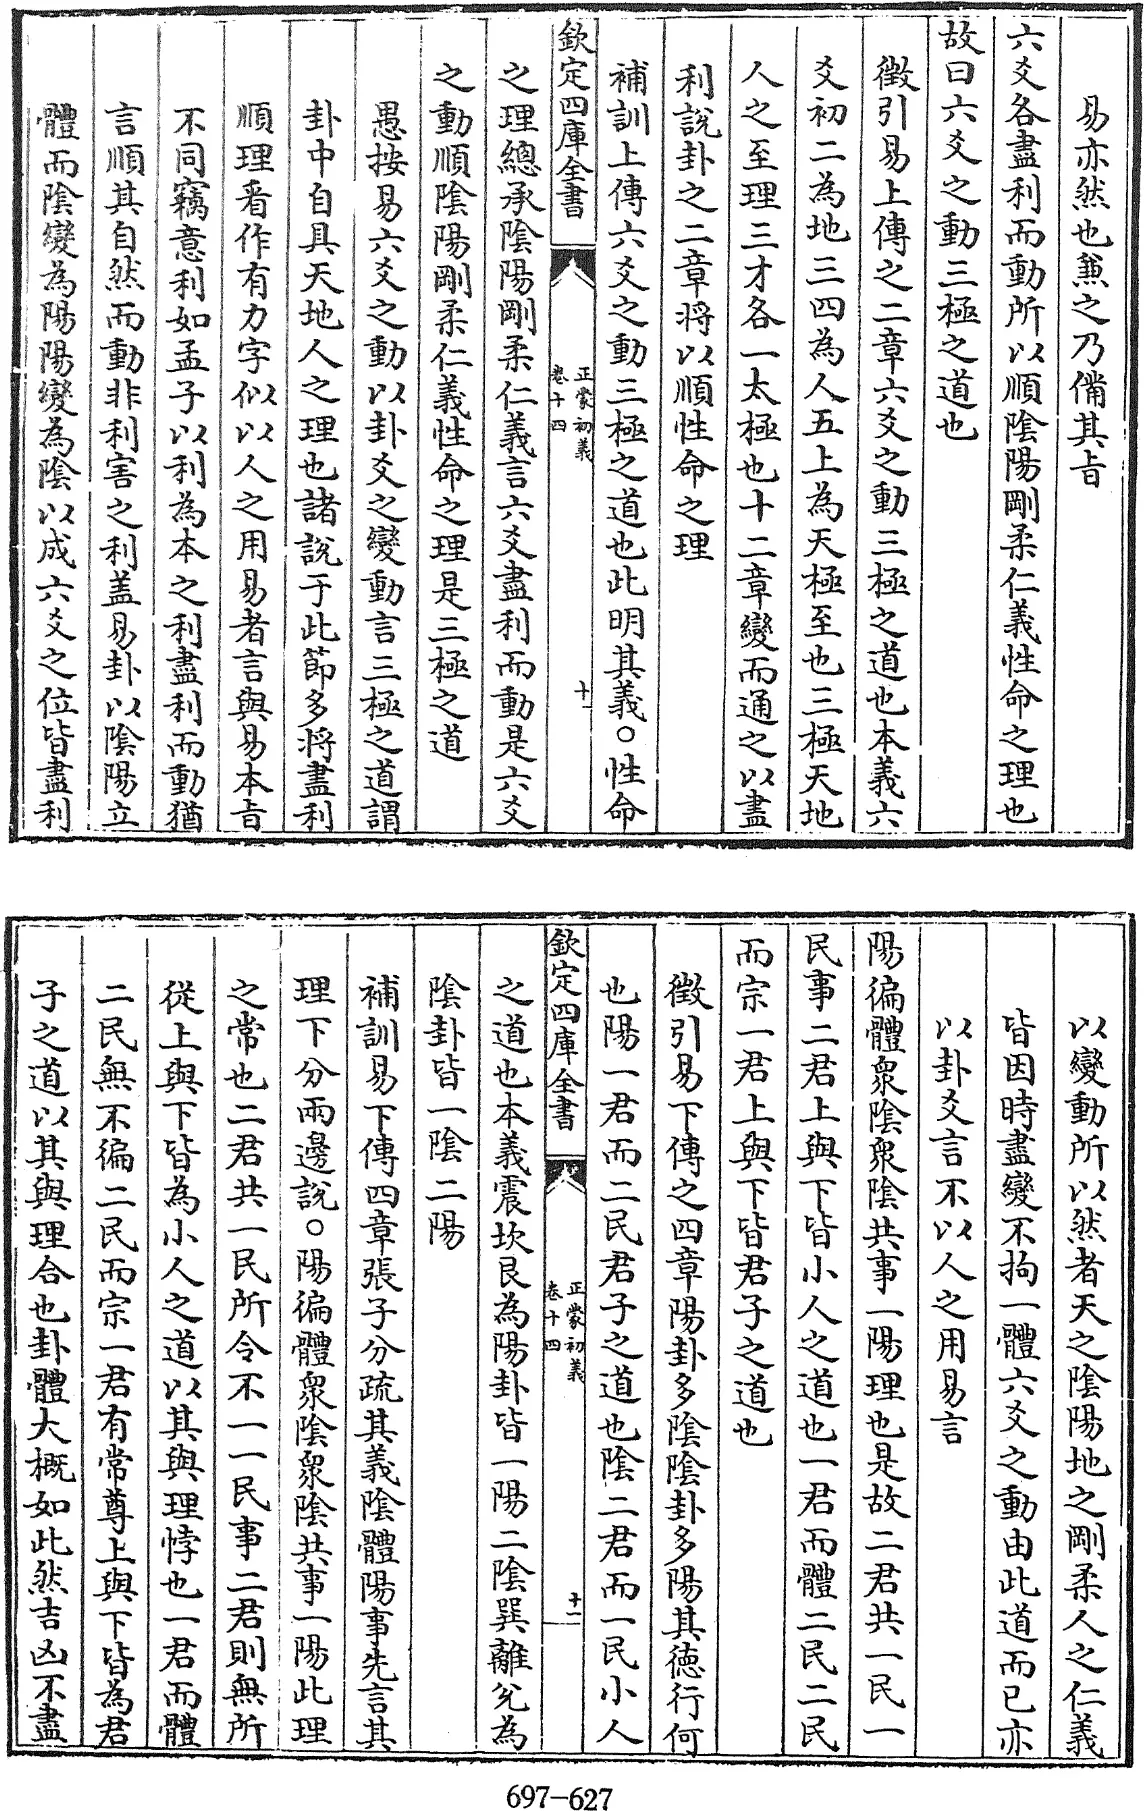 易亦然也兼之乃備其㫖
六爻各盡利而動所以順陰陽剛柔仁義性命之理也
故曰六爻之動三極之道也
徵引易上傳之二章六爻之動三極之道也本義六
爻初二為地三四為人五上為天極至也三極天地
人之至理三才各一太極也十二章變而通之以盡
利說卦之二章將以順性命之理
補訓上傳六爻之動三極之道也此明其義○性命
欽定四庫全書
正蒙初義
卷十四
十
之理總承陰陽剛柔仁義言六爻盡利而動是六爻
之動順陰陽剛柔仁義性命之理是三極之道
愚按易六爻之動以卦爻之變動言三極之道謂
卦中自具天地人之理也諸說于此節多將盡利
順理看作有力字似以人之用易者言與易本㫖
不同竊意利如孟子以利為本之利盡利而動猶
言順其自然而動非利害之利盖易卦以陰陽立
體而陰變為陽陽變為陰以成六爻之位皆盡利
以變動所以然者天之陰陽地之剛柔人之仁義
皆因時盡變不拘一體六爻之動由此道而已亦
以卦爻言不以人之用易言
陽徧體衆陰衆陰共事一陽理也是故二君共一民一
民事二君上與下皆小人之道也一君而體二民二民
而宗一君上與下皆君子之道也
徵引易下傳之四章陽卦多陰陰卦多陽其德行何
也陽一君而二民君子之道也陰二君而一民小人
欽定四庫全書
正蒙初義
卷十四
十一
之道也本義震坎艮為陽卦皆一陽二陰巽離兌為
陰卦皆一陰二陽
補訓易下傳四章張子分疏其義陰體陽事先言其
理下分兩邊說○陽徧體衆陰衆陰共事一陽此理
之常也二君共一民所令不一一民事二君則無所
從上與下皆為小人之道以其與理悖也一君而體
二民無不徧二民而宗一君有常尊上與下皆為君
子之道以其與理合也卦體大概如此然吉凶不盡
697-627